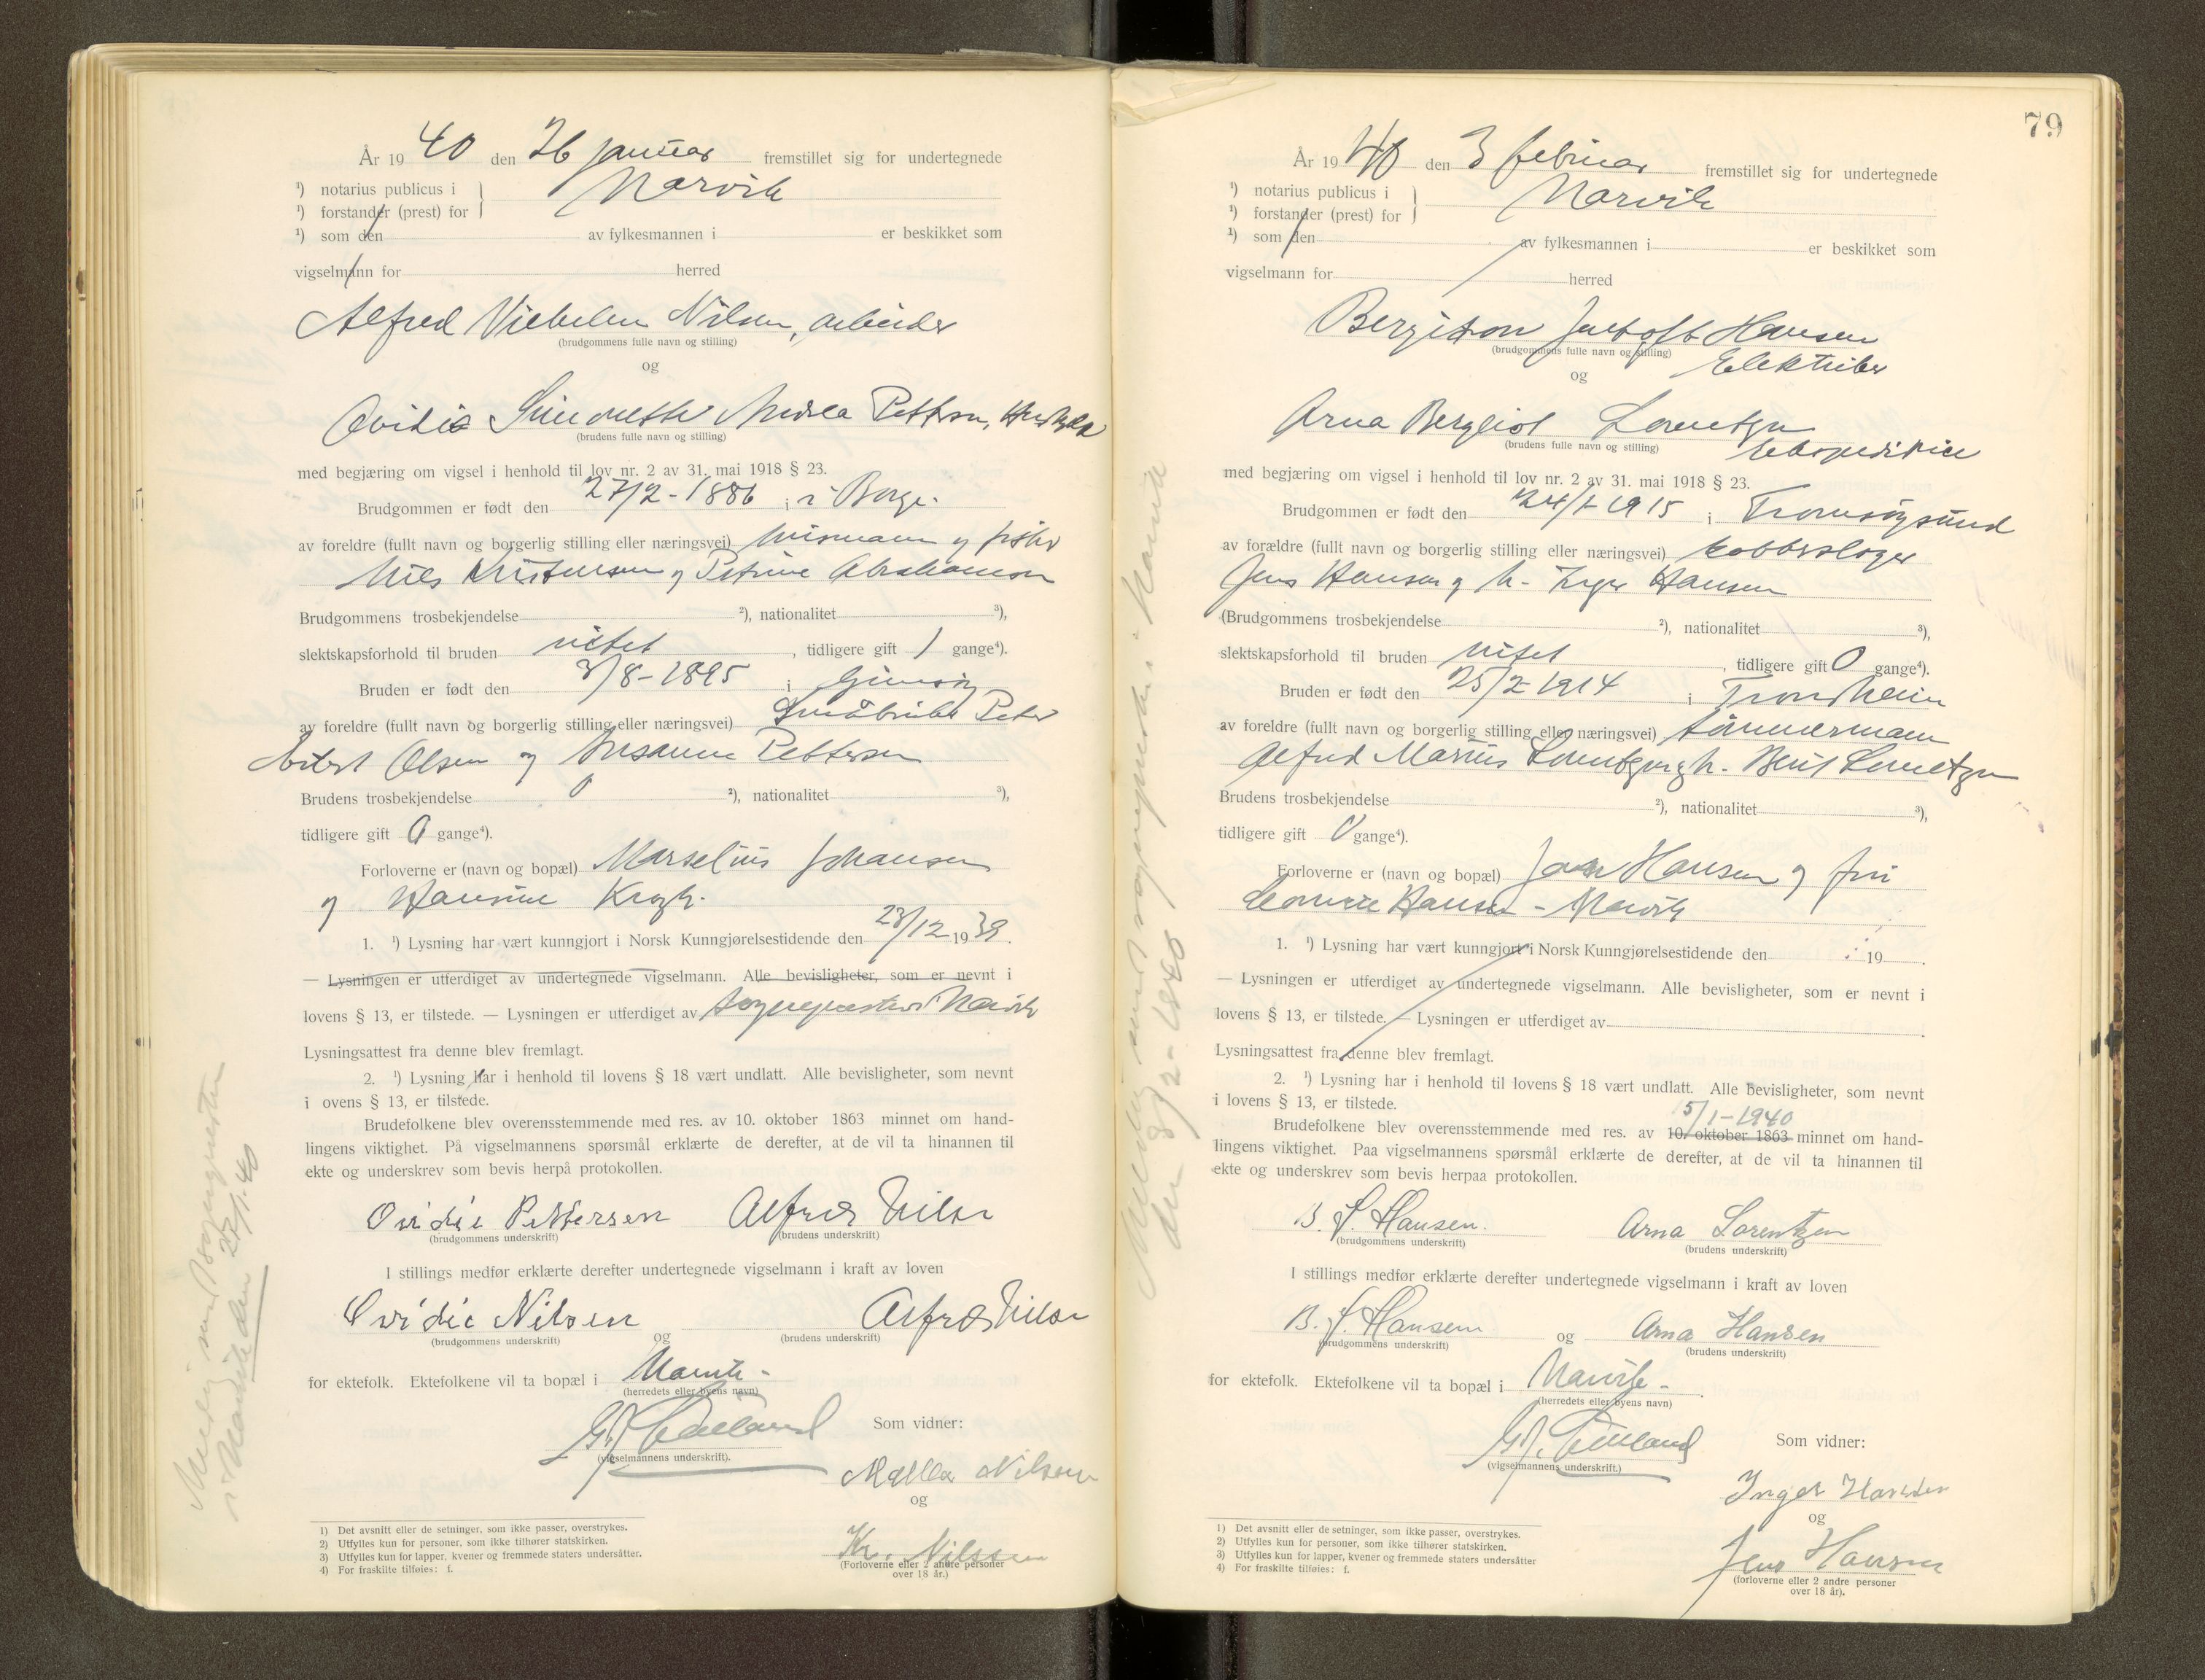 År 19 40 den 26 januar fremstillet sig for undertegnede
¹) notarius publicus i
¹) forstander (prest) for
Narvik
¹) som den av fylkesmannen i er beskikket som
vigselmann for herred
Alfred Vilhelm Nilsen, arbeider
(brudgommens fulle navn og stilling)
og
Ovidie Simonette Andrea Pettersen,
(brudens fulle navn og stilling)
med begjæring om vigsel i henhold til lov nr. 2 av 31. mai 1918 § 23.
Brudgommen er født den 27/2-1886 i Borge.
av foreldre (fullt navn og borgerlig stilling eller næringsvei) og fisker
Nils Kristensen og Petrine Abrahamsen
Brudgommens trosbekjendelse ²), nationalitet ³),
slektskapsforhold til bruden intet, tidligere gift 1 gange⁴).
Bruden er født den 3/8-1895 i Gimsøy
av foreldre (fullt navn og borgerlig stilling eller næringsvei) Småbruker Peter
Olsen og Susanne Pettersen
Brudens trosbekjendelse 0 ²), nationalitet ³),
tidligere gift 0 gange⁴).
Forloverne er (navn og bopæl) Marselius Johansen
og Hansine Krogh.
1. ¹) Lysning har vært kunngjort i Norsk Kunngjørelsestidende den 23/12 1939.
— Lysningen er utferdiget av undertegnede vigselmann. Alle bevisligheter, som er nevnt i
lovens § 13, er tilstede. — Lysningen er utferdiget av sognepresten i Narvik
Lysningsattest fra denne blev fremlagt.
2. ¹) Lysning har i henhold til lovens § 18 vært undlatt. Alle bevisligheter, som nevnt
i ovens § 13, er tilstede.
Brudefolkene blev overensstemmende med res. av 10. oktober 1863 minnet om hand-
lingens viktighet. På vigselmannens spørsmål erklærte de derefter, at de vil ta hinannen til
ekte og underskrev som bevis herpå protokollen.
Ovidie Pettersen Alfred Nilsen
(brudgommens underskrift) (brudens underskrift)
I stillings medfør erklærte derefter undertegnede vigselmann i kraft av loven
Ovidie Nilsen Alfred Nilsen
(brudgommens underskrift) og (brudens underskrift)
for ektefolk. Ektefolkene vil ta bopæl i Narvik -
(herredets eller byens navn)
(vigselmannens underskrift).
Som vidner:
Nilsen
og
Kr. Nilssen
(Forloverne eller 2 andre personer
over 18 år.)
1) Det avsnitt eller de setninger, som ikke passer, overstrykes.
2) Utfylles kun for personer, som ikke tilhører statskirken.
3) Utfylles kun for lapper, kvener og fremmede staters undersåtter.
4) For fraskilte tilføies: f.
Melding sendt sognepresten
i Narvik den 27/1-40
79
År 19 40 den 3 februar fremstillet sig for undertegnede
¹) notarius publicus i
¹) forstander (prest) for
Narvik
¹) som den av fylkesmannen i er beskikket som
vigselmann for herred
Hansen
(brudgommens fulle navn og stilling)
Elektriker
og
Arna Bergliot Lorentzen
(brudens fulle navn og stilling)
Ekspeditrice
med begjæring om vigsel i henhold til lov nr. 2 av 31. mai 1918 § 23.
Brudgommen er født den 24/1-1915 i Tromsøysund
av forældre (fullt navn og borgerlig stilling eller næringsvei) kobberslager
Jens Hansen og h. Inger Hansen
(Brudgommens trosbekjendelse ²), nationalitet ³),
slektskapsforhold til bruden intet, tidligere gift 0 gange⁴).
Bruden er født den 25/2-1914 i Trondheim
av foreldre (fullt navn og borgerlig stilling eller næringsvei) tømmermann
Alfred Marius Lorentzen og h. Berit Lorentzen
Brudens trosbekjendelse ²), nationalitet ³),
tidligere gift 0 gange⁴).
Forloverne er (navn og bopæl) Hansen og fru
Hansen - Narvik
1. ¹) Lysning har vært kunngjort i Norsk Kunngjørelsestidende den 19 .
— Lysningen er utferdiget av undertegnede vigselmann. Alle bevisligheter, som er nevnt i
lovens § 13, er tilstede. — Lysningen er utferdiget av
Lysningsattest fra denne blev fremlagt.
2. ¹) Lysning har i henhold til lovens § 18 vært undlatt. Alle bevisligheter, som nevnt
i lovens § 13, er tilstede.
5/1-1940
Brudefolkene blev overensstemmende med res. av 10. oktober 1863 minnet om hand-
lingens viktighet. Paa vigselmannens spørsmål erklærte de derefter, at de vil ta hinannen til
ekte og underskrev som bevis herpaa protokollen.
B. J. Hansen. Arna Lorentzen
(brudgommens underskrift) (brudens underskrift)
I stillings medfør erklærte derefter undertegnede vigselmann i kraft av loven
B. J. Hansen og Arna Hansen
(brudgommens underskrift) (brudens underskrift)
for ektefolk. Ektefolkene vil ta bopæl i Narvik - .
(herredets eller byens navn)
(vigselmannens underskrift.)
Som vidner:
Inger Hansen
og
Jens Hansen
(forloverne eller 2 andre personer
over 18 år).
1) Det avsnitt eller de setninger, som ikke passer, overstrykes.
2) Utfylles kun for personer, som ikke tilhører statskirken.
3) Utfylles kun for lapper, kvener og fremmede staters undersåtter
4) For fraskilte tilføies: f.
Melding sendt sognepresten i Narvik
den 3/2-1940